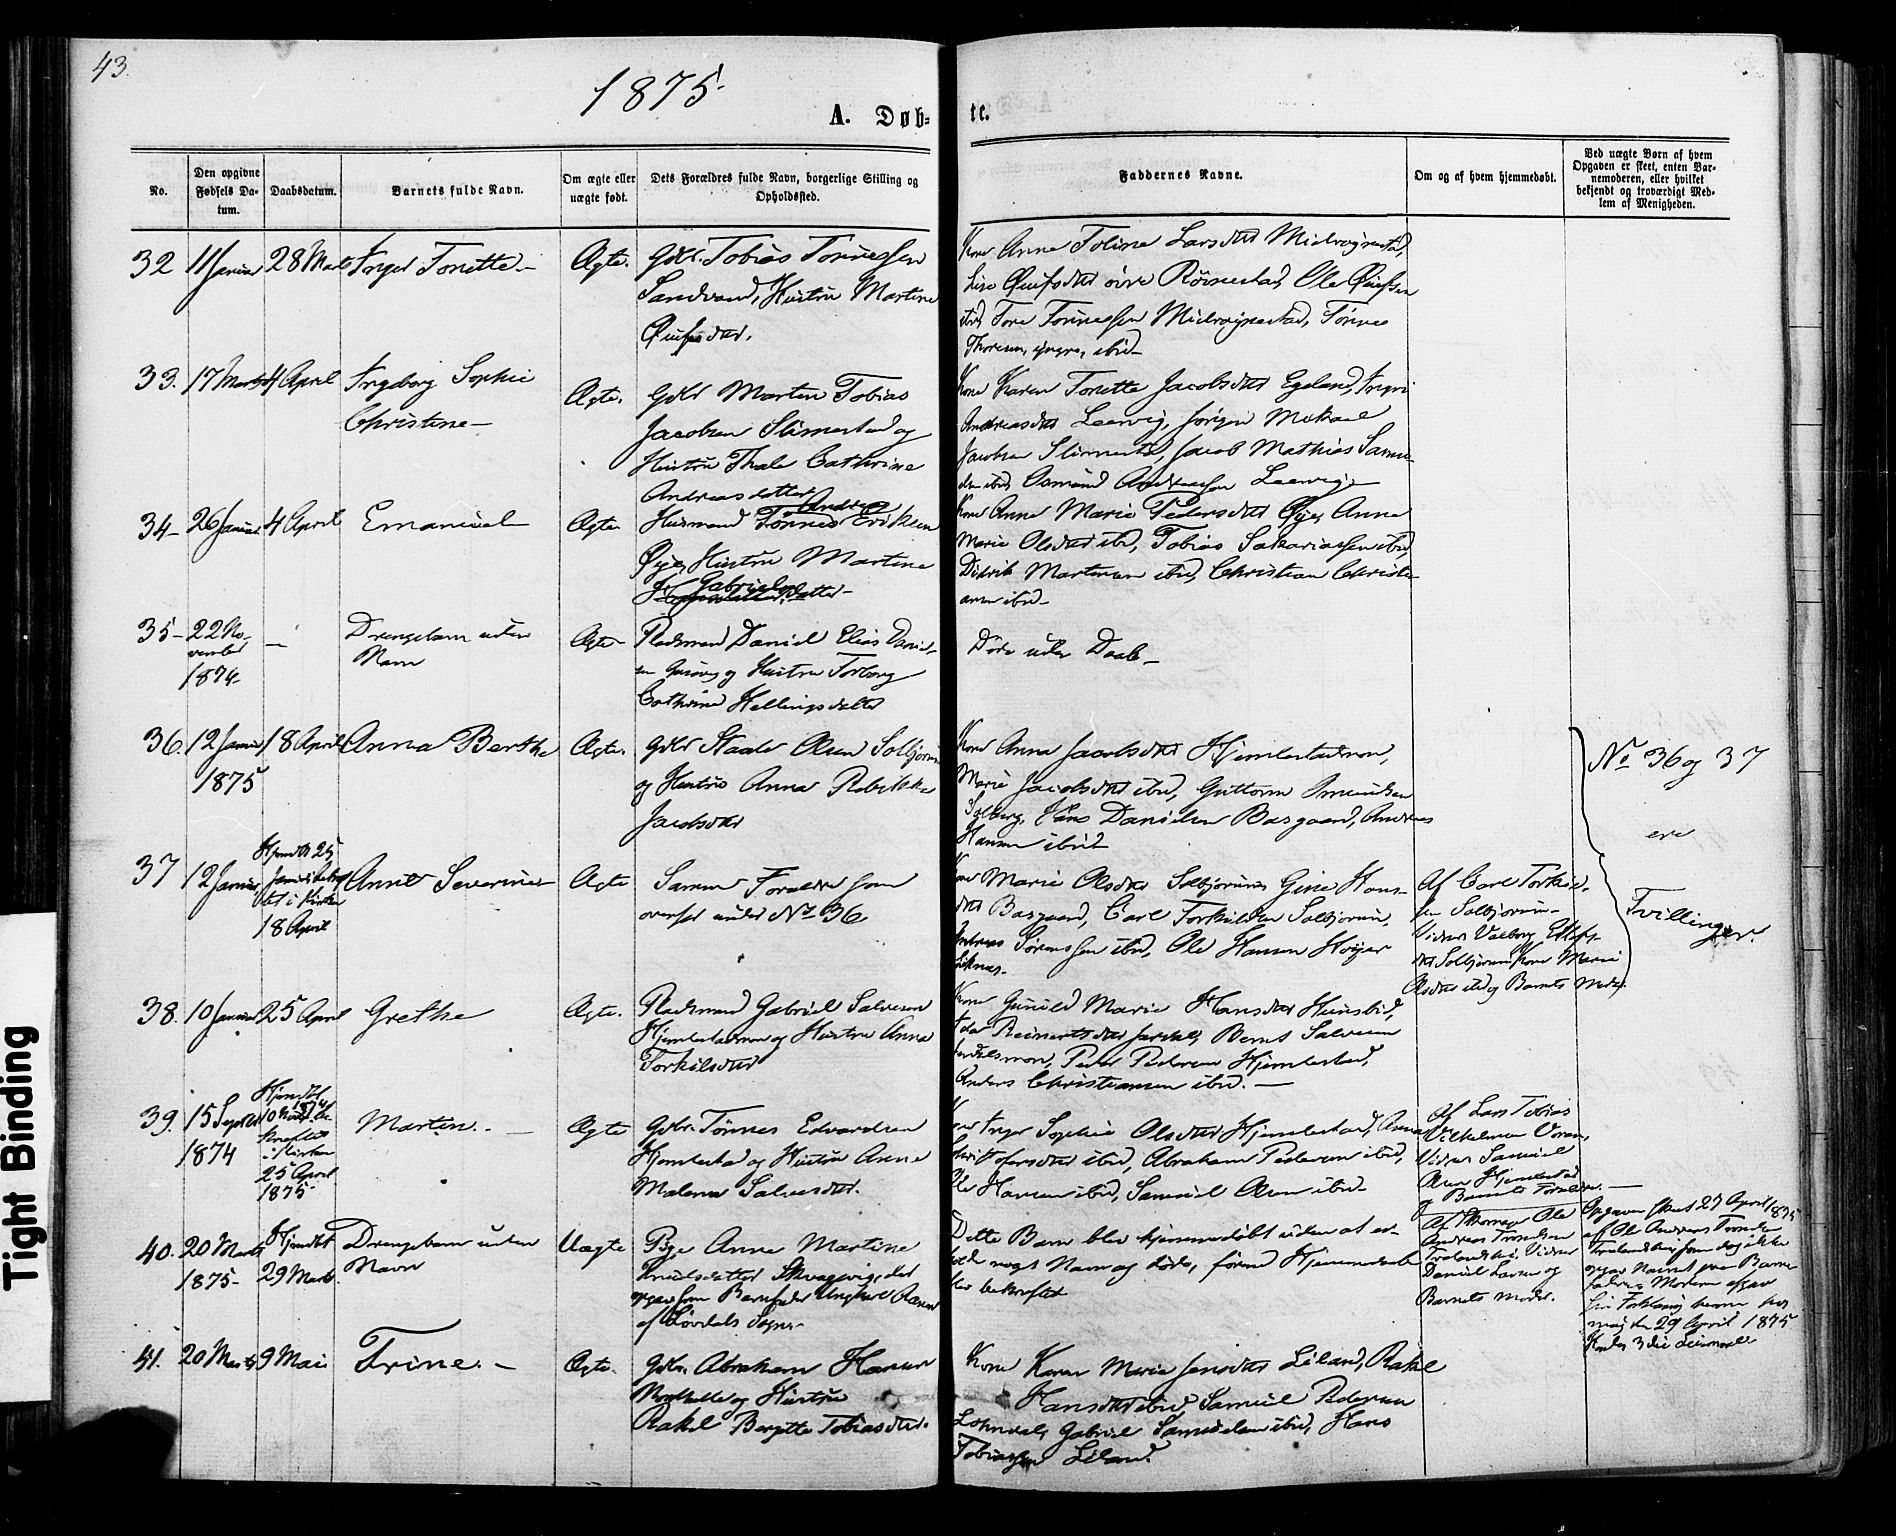 43.
1875
A. Døb=
te.
No.
Den opgivne
Fødsels Da-
tum.
Daabsdatum.
Barnets fulde Navn.
Om ægte eller
uægte født.
Dets Forældres fulde Navn, borgerlige Stilling og
Opholdssted.
Faddernes Navne.
Om og af hvem hjemmedøbt.
Ved uægte Børn af hvem
Opgaven er skeet, enten Bar-
nemoderen, eller hvilket
bekjendt og troværdigt Med-
lem af Menigheden.
32 11 Januar 28 Marts Inger Tonette – Ægte. Gdbr. Tobias Tønnessen
Sandvand, Hustru Martine
Kone Anne Toline Larsdtr
øvre Rørnestad, Ole
Tore Tønnessen Tønnes
Thoresen, yngre, ibid –
33. 17 Marts 4 April Ingeborg Sophie
Christine –
Ægte. Gdbr Marten Tobias
Jacobsen Slimestad og
Hustru Thale Cathrine
Andreasdatter
Kone Karen Tonette Jacobsdtr Egeland, Ingri
Andreasdtr Leervig, Jørgen Mikael
Jacobsen Slimestad, Jacob Mathias Samu-
elsen ibid, Osmund Andreassen Leervig –
34 – 26 Januar 4 April Emanuel Ægte Husmand Tønnes Andreas Eriksen
Øye, Hustru Martine
Gabrielsdatter –
Kone Anne Marie Pedersdtr Øye, Anne
Marie Olsdtr ibid, Tobias Sakariassen ibid,
Didrik Martensen ibid, Christian Christi-
ansen ibid –
35 – 22 No-
vember
1874 –
Drengebarn uden
Navn
Ægte Pladsmand Daniel Elias Daniel-
sen og Hustru Torborg
Cathrine Hellingsdatter
Døde uden Daab –
36. 12 Januar 18 April Anna Berthe Ægte. Gdbr Staale Olsen Solbjørnu
1875
og Hustru Anna Rebekka
Jacobsdtr
Kone Anna Jacobsdtr Hjemlestadmon,
Marie Jacobsdtr ibid, Guttorm
Solberg, Hans Danielsen Basgaard, Andreas
Hansen ibid –
No 36 og 37
ere
Tvillinger.
37 12 Januar Hjemdbt 25
Januar
i Kirken
18 April
Anne Severine – Ægte Samme Forældre som
anført under No 36
Kone Marie Olsdtr Solbjørnu, Gine Hans-
dtr Basgaard, Carl Torkildsen Solbjørnu,
Andreas Sørenssen ibid, Ole Hansen
Af Carl Torkild-
sen Solbjørnu –
Vidner Valborg
Solbjørnu, Kone Marie
Olsdtr ibid og Barnets Moder.
38. 10 Januar 25 April Grethe Ægte. Pladsmand Gabriel Salvesen
Hjemlestadmon og Hustru Anna
Torkilsdtr
Kone Gunild Marie Hansdtr
Reinertsdtr Bernt Salvesen
Peder Pedersen Hjemlestad,
Anders Christiansen ibid. –
39. 15 Septbr
1874
Hjemdbt
i Kirken
25 April
1875 –
Martin. – Ægte Gdbr. Tønnes Edvardsen
Hjemlestad og Hustru Anne
Malene Salvesdtr.
Kone Inger Sophie Olsdtr Hjemlestad, Anne
ibid, Abraham Pedersen ibid,
Ole Hansen ibid, Samuel Olsen ibid –
Af Lars Tobias
Vidner Samuel
Olsen Hjemlestad
og Barnets Forældre. –
40. 20 Marts
1875 –
Hjemdbt
29 Marts
Drengebarn uden
Navn
Uægte Pige Anne Martine
Knudsdatter
opgav som Barnefader Ungkarl
af Sogn –
Dette Barn blev hjemmedøbt uden at er-
holde nogt Navn og døde, førend Hjemmedaaben
blev bekræftet
Ole
Andreas
Vidner
Daniel Larsen og
Barnets Moder.
Opgaven skeet 27 April 1875
af Ole Andreas
som dog ikke
opgav Navnet paa Barne-
faderen. Moderen afgav
sin Forklaring herom hos
mig den 29 April 1875
Hendes 3die Leiermaal
41. 20 Marts 9 Mai Trine. – Ægte. Gdbr. Abraham Hansen
og Hustru
Rakel Bergitte Tobiasdtr.
Kone Karen Marie Jensdtr Leland, Rakel
Hansdtr ibid, Samuel Pedersen
Gabriel Samuelsen ibid, Hans
Tobiassen Leland.
Tight Binding